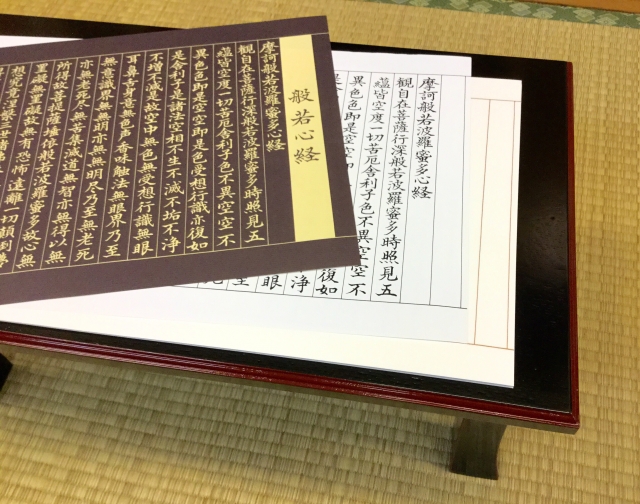 般若心経
摩訶般若波羅蜜多心経
観自在菩薩行深般若波羅蜜多時照見五
蘊皆空度一切苦厄舎利子色不異空空不
異色色即是空空即是色受想行識亦復如
是舎利子是諸法空相不生不滅不垢不浄
不増不減是故空中無色無受想行識無眼
耳鼻舌身意無色声香味触法無眼界乃至
無意識界無無明亦無無明尽乃至無老死
亦無老死尽無苦集滅道無智亦無得以無
所得故菩提薩埵依般若波羅蜜多故心無
罣礙無罣礙故無有恐怖遠離一切顛倒夢
想究竟涅槃三世諸仏
摩訶般若波羅蜜多心経
観自在菩薩行深般若波羅蜜多時照見五
蘊皆空度一切苦厄舎利子色不異空空不
異色色即是空空
復如
浄
眼
至